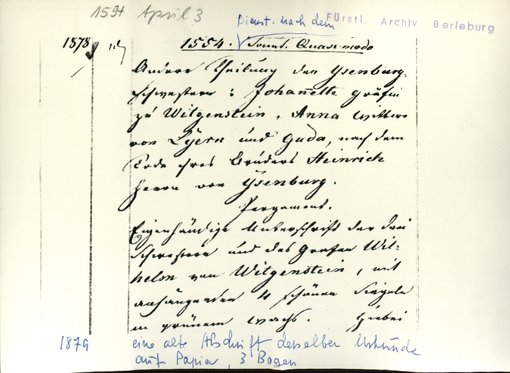 1554 April 3
Dienst. nach dem
Fürstl. Archiv Berleburg
1878
1554. Sonnt. Quasimodo
Andere Theilung der Ysenburg.
schwestern: Johannette gräfin
zu Witgenstein, Anna wittwe
von Eyern und Guda, nach dem
Tode ihres Bruders Heinrich
Herrn von Ysenburg.
Pergament.
Eigenhändige Unterschrift der drei
Schwestern und des Grafen Wil-
helm von Witgenstein, mit
anhängenden 4 schönen Siegeln
in grünem wachs. Hiebei
1879 eine alte Abschrift derselben Urkunde
auf Papier, 3 Bogen